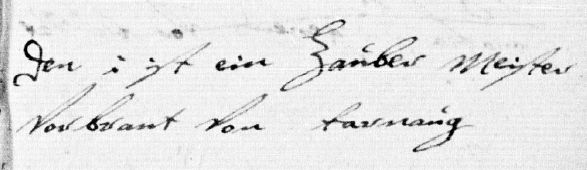 Den i ist ein Zauber Meister
Vorbrant Von tarnaug